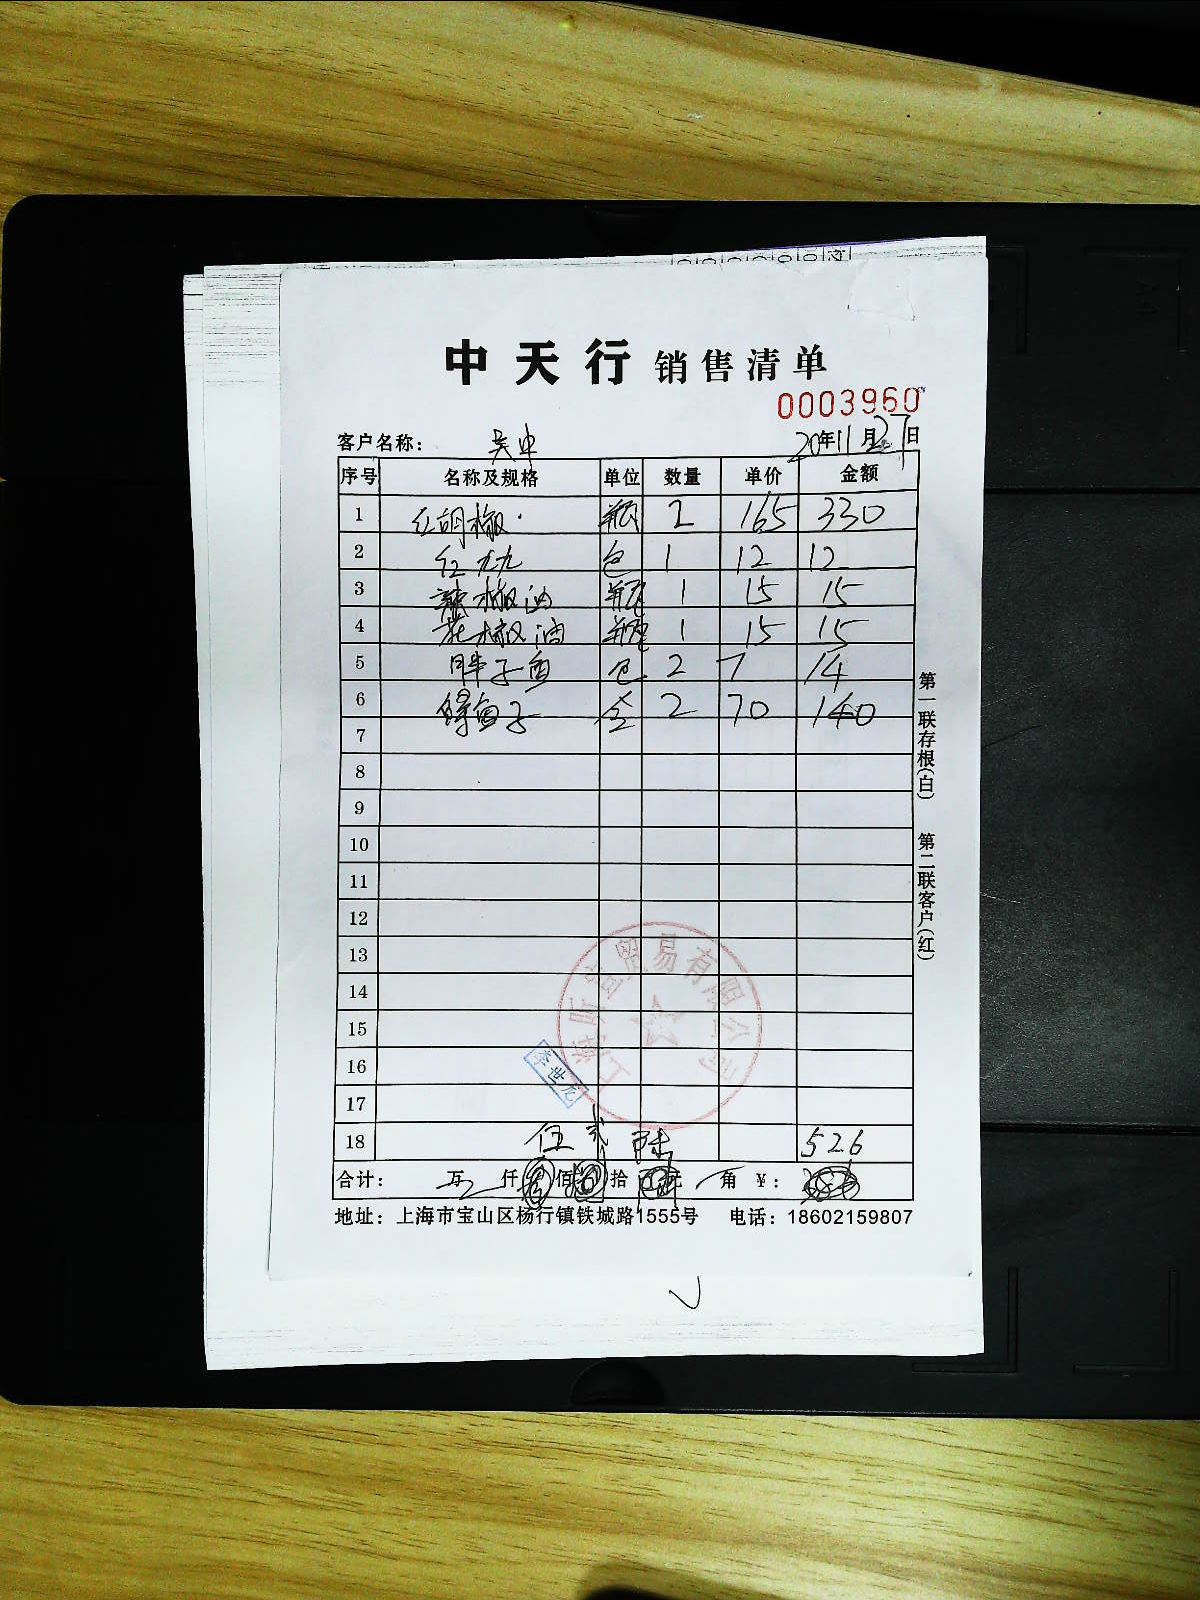 中天行 销售清单
0003960
客户名称: 吴中 20年11月27日
序号 名称及规格 单位 数量 单价 金额
1 红胡椒 瓶 2 165 330
2 红九九 包 1 12 12
3 辣椒油 瓶 1 15 15
4 花椒油 瓶 1 15 15
5 胖子鱼 包 2 7 14
6 鱼子 盒 2 70 140
7
8
9
10
11
12
13
14
15
16
17
18 伍 贰 陆 526
合计: 万 仟 佰 拾 元 角 ¥:
地址: 上海市宝山区杨行镇铁城路1555号 电话: 18602159807
第一联存根(白) 第二联客户(红)
贸易有限公司
李世龙